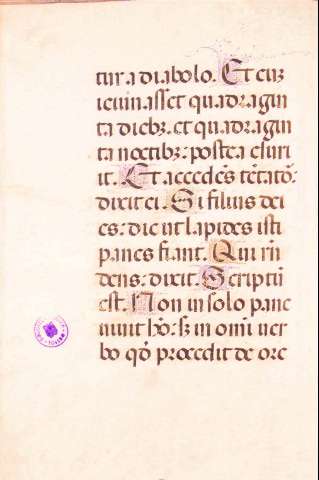 tur a diabolo. Et cuȝ
ieiunasset quadragin
ta diebꝫ. et quadragin
ta noctibꝫ: postea esuri
it. Et accedēs tētatoꝛ:
dixit ei. Si filius dei
es: dic ut lapides isti
panes fiant. Qui rn̄
dens: dixit. Scriptū
est. Non in solo pane
uiuit hō: sꝫ in omī uer
bo qđ procedit de ore